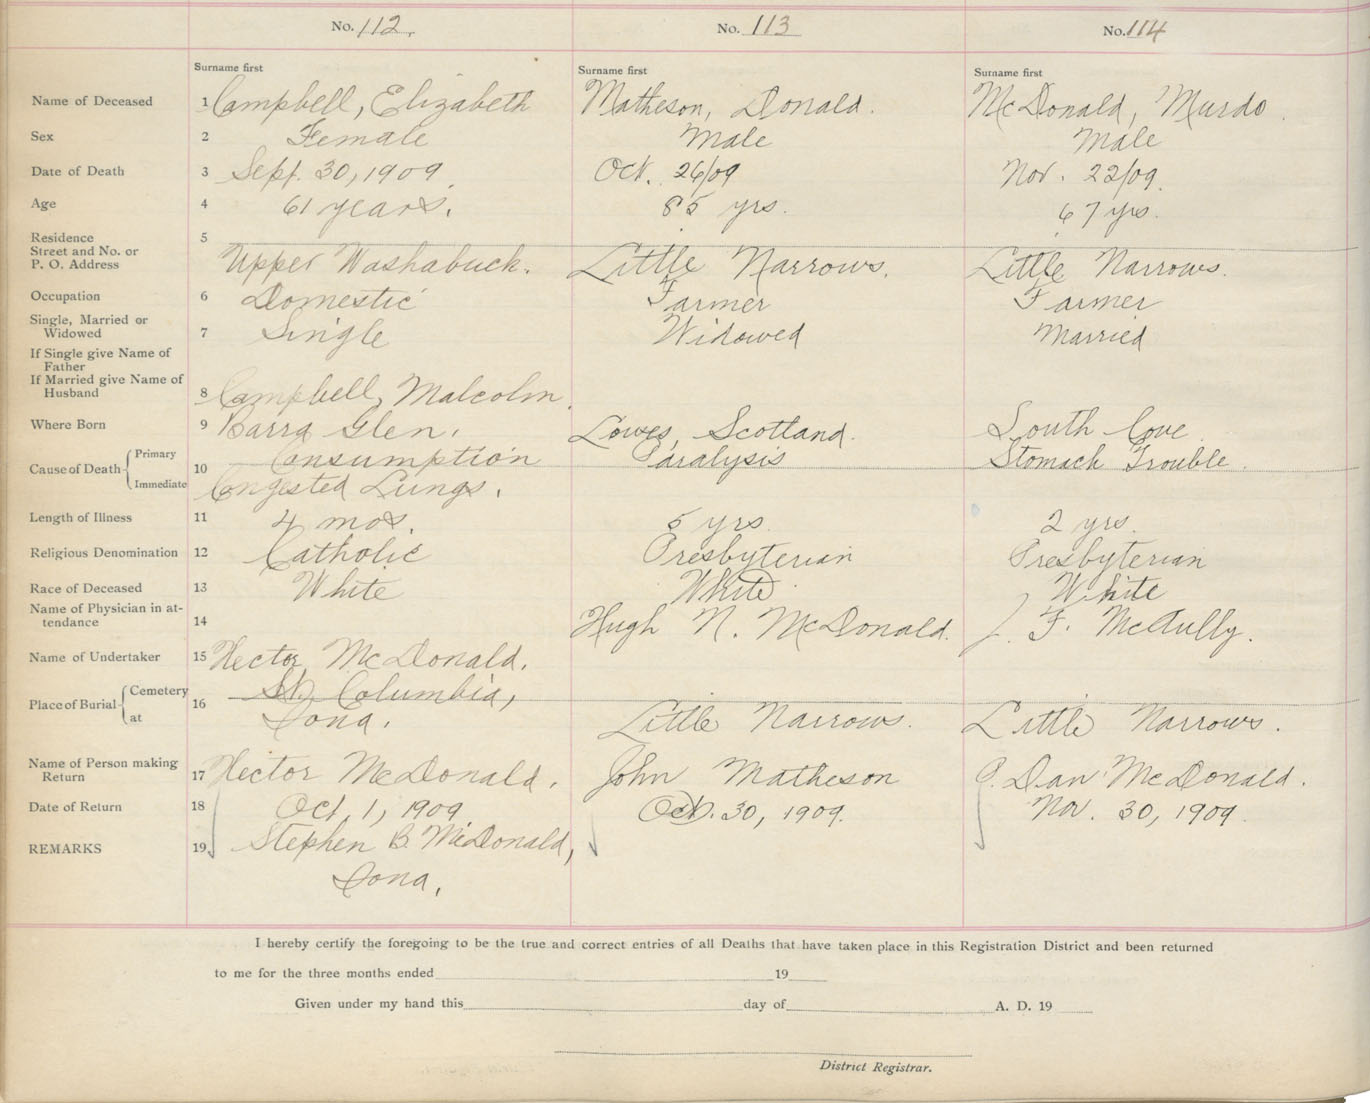 No. 112. No. 113 No. 114
Surname first Surname first Surname first
Name of Deceased 1 Campbell, Elizabeth Matheson, Donald. McDonald, Murdo.
Sex 2 Female Male Male
Date of Death 3 Sept. 30, 1909. Oct. 26/09 Nov. 22/09.
Age 4 61 years. 85 yrs. 67 yrs.
Residence 5
Street and No. or
P. O. Address Upper Washabuck. Little Narrows. Little Narrows.
Occupation 6 Domestic Farmer Farmer
Single, Married or
Widowed 7 Single Widowed Married
If Single give Name of
Father
If Married give Name of
Husband 8 Campbell, Malcolm.
Where Born 9 Barra Glen. Lowes, Scotland. South Cove
Cause of Death Primary 10 Consumption Paralysis Stomach Trouble.
Immediate Congested Lungs.
Length of Illness 11 4 mos. 5 yrs. 2 yrs.
Religious Denomination 12 Catholic Presbyterian Presbyterian
Race of Deceased 13 White White White
Name of Physician in at-
tendance 14 Hugh N. McDonald. J. F. McAully.
Name of Undertaker 15 Hector McDonald.
Place of Burial Cemetery 16 St. Columbia,
at Iona. Little Narrows. Little Narrows.
Name of Person making
Return 17 Hector McDonald. John Matheson P. Dan McDonald.
Date of Return 18 Oct. 1, 1909 Oct. 30, 1909. Nov. 30, 1909.
REMARKS 19 Stephen B. McDonald,
Iona.
I hereby certify the foregoing to be the true and correct entries of all Deaths that have taken place in this Registration District and been returned
to me for the three months ended 19
Given under my hand this day of A. D. 19
District Registrar.